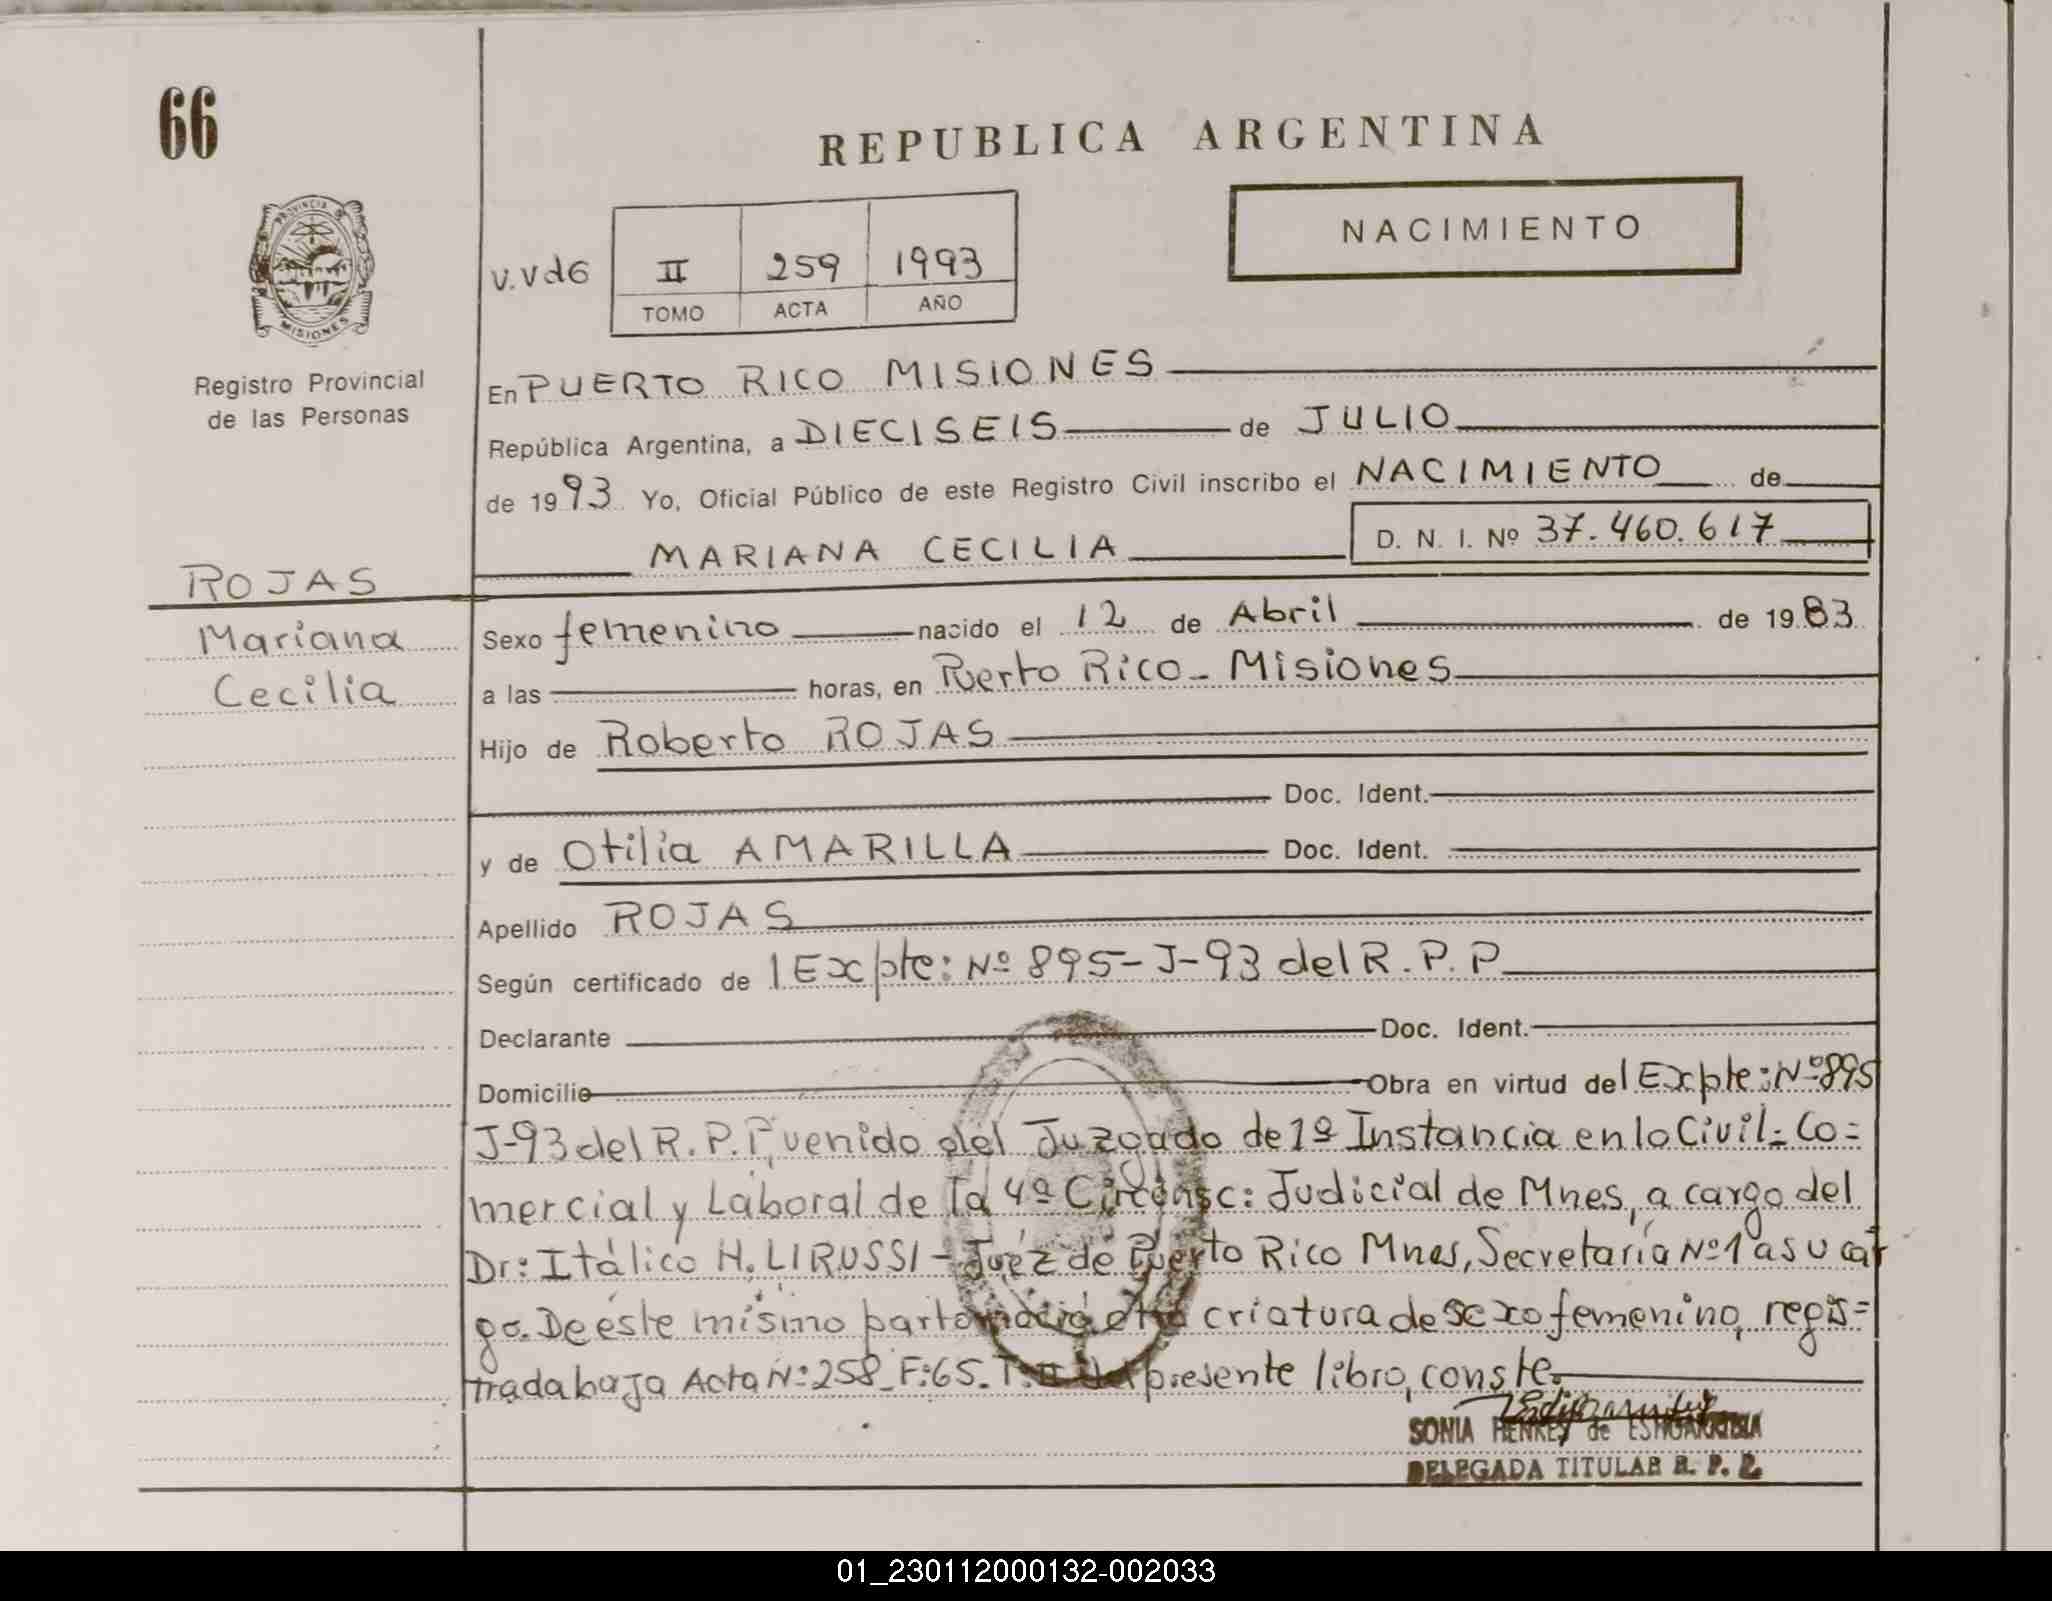 66
REPUBLICA ARGENTINA
NACIMIENTO
PROVINCIA DE
MISIONES
v.vd6
II 259 1993
TOMO ACTA AÑO
Registro Provincial
de las Personas
En PUERTO RICO MISIONES
República Argentina, a DIECISEIS de JULIO
de 1993. Yo, Oficial Público de este Registro Civil inscribo el NACIMIENTO de
MARIANA CECILIA D. N. I. Nº 37.460.617
ROJAS
Mariana
Cecilia
Sexo femenino nacido el 12 de Abril de 1983
a las horas, en Puerto Rico - Misiones
Hijo de Roberto ROJAS
Doc. Ident.
y de Otilia AMARILLA Doc. Ident.
Apellido ROJAS
Según certificado de l Expte: Nº 895-J-93 del R.P.P
Declarante Doc. Ident.
Domicilio Obra en virtud del Expte: Nº 895
J-93 del R.P.P, venido del Juzgado de 1º Instancia en lo Civil-Co=
mercial y Laboral de la 4º Circunsc: Judicial de Mnes, a cargo del
Dr: Itálico H. LIRUSSI - Juez de Puerto Rico Mnes, Secretaría Nº 1 a su car
go. De éste mismo parto nació otra criatura de sexo femenino, regis=
trada bajo Acta Nº: 258 - F: 65 - T: II del presente libro, conste.
SONIA HENKEY de
DELEGADA TITULAR R. P. P.
01_230112000132-002033